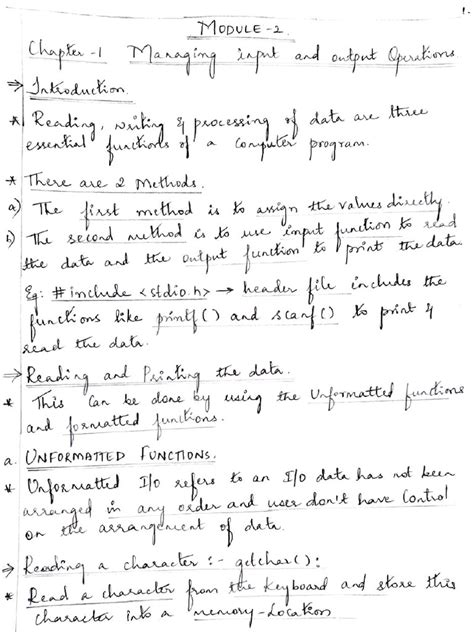 1.
MODULE-2
Chapter-1 Managing input and output Operations
⇒ Introduction.
* Reading, writing & processing of data are three
essential functions of a Computer program.
* There are 2 Methods.
a) The first method is to assign the values directly.
b) The second method is to use input function to read
the data and the output function to print the data.
Eg: #include <stdio.h> → header file includes the
functions like printf() and scanf() to print &
read the data.
⇒ Reading and Printing the data.
* This Can be done by using the Unformatted functions
and formatted functions.
a. UNFORMATTED FUNCTIONS.
* Unformatted I/o refers to an I/o data has not been
arranged in any order and user don't have Control
on the arrangement of data.
⇒ Reading a character :- getchar():
* Read a character from the Keyboard and store this
character into a memory-Location